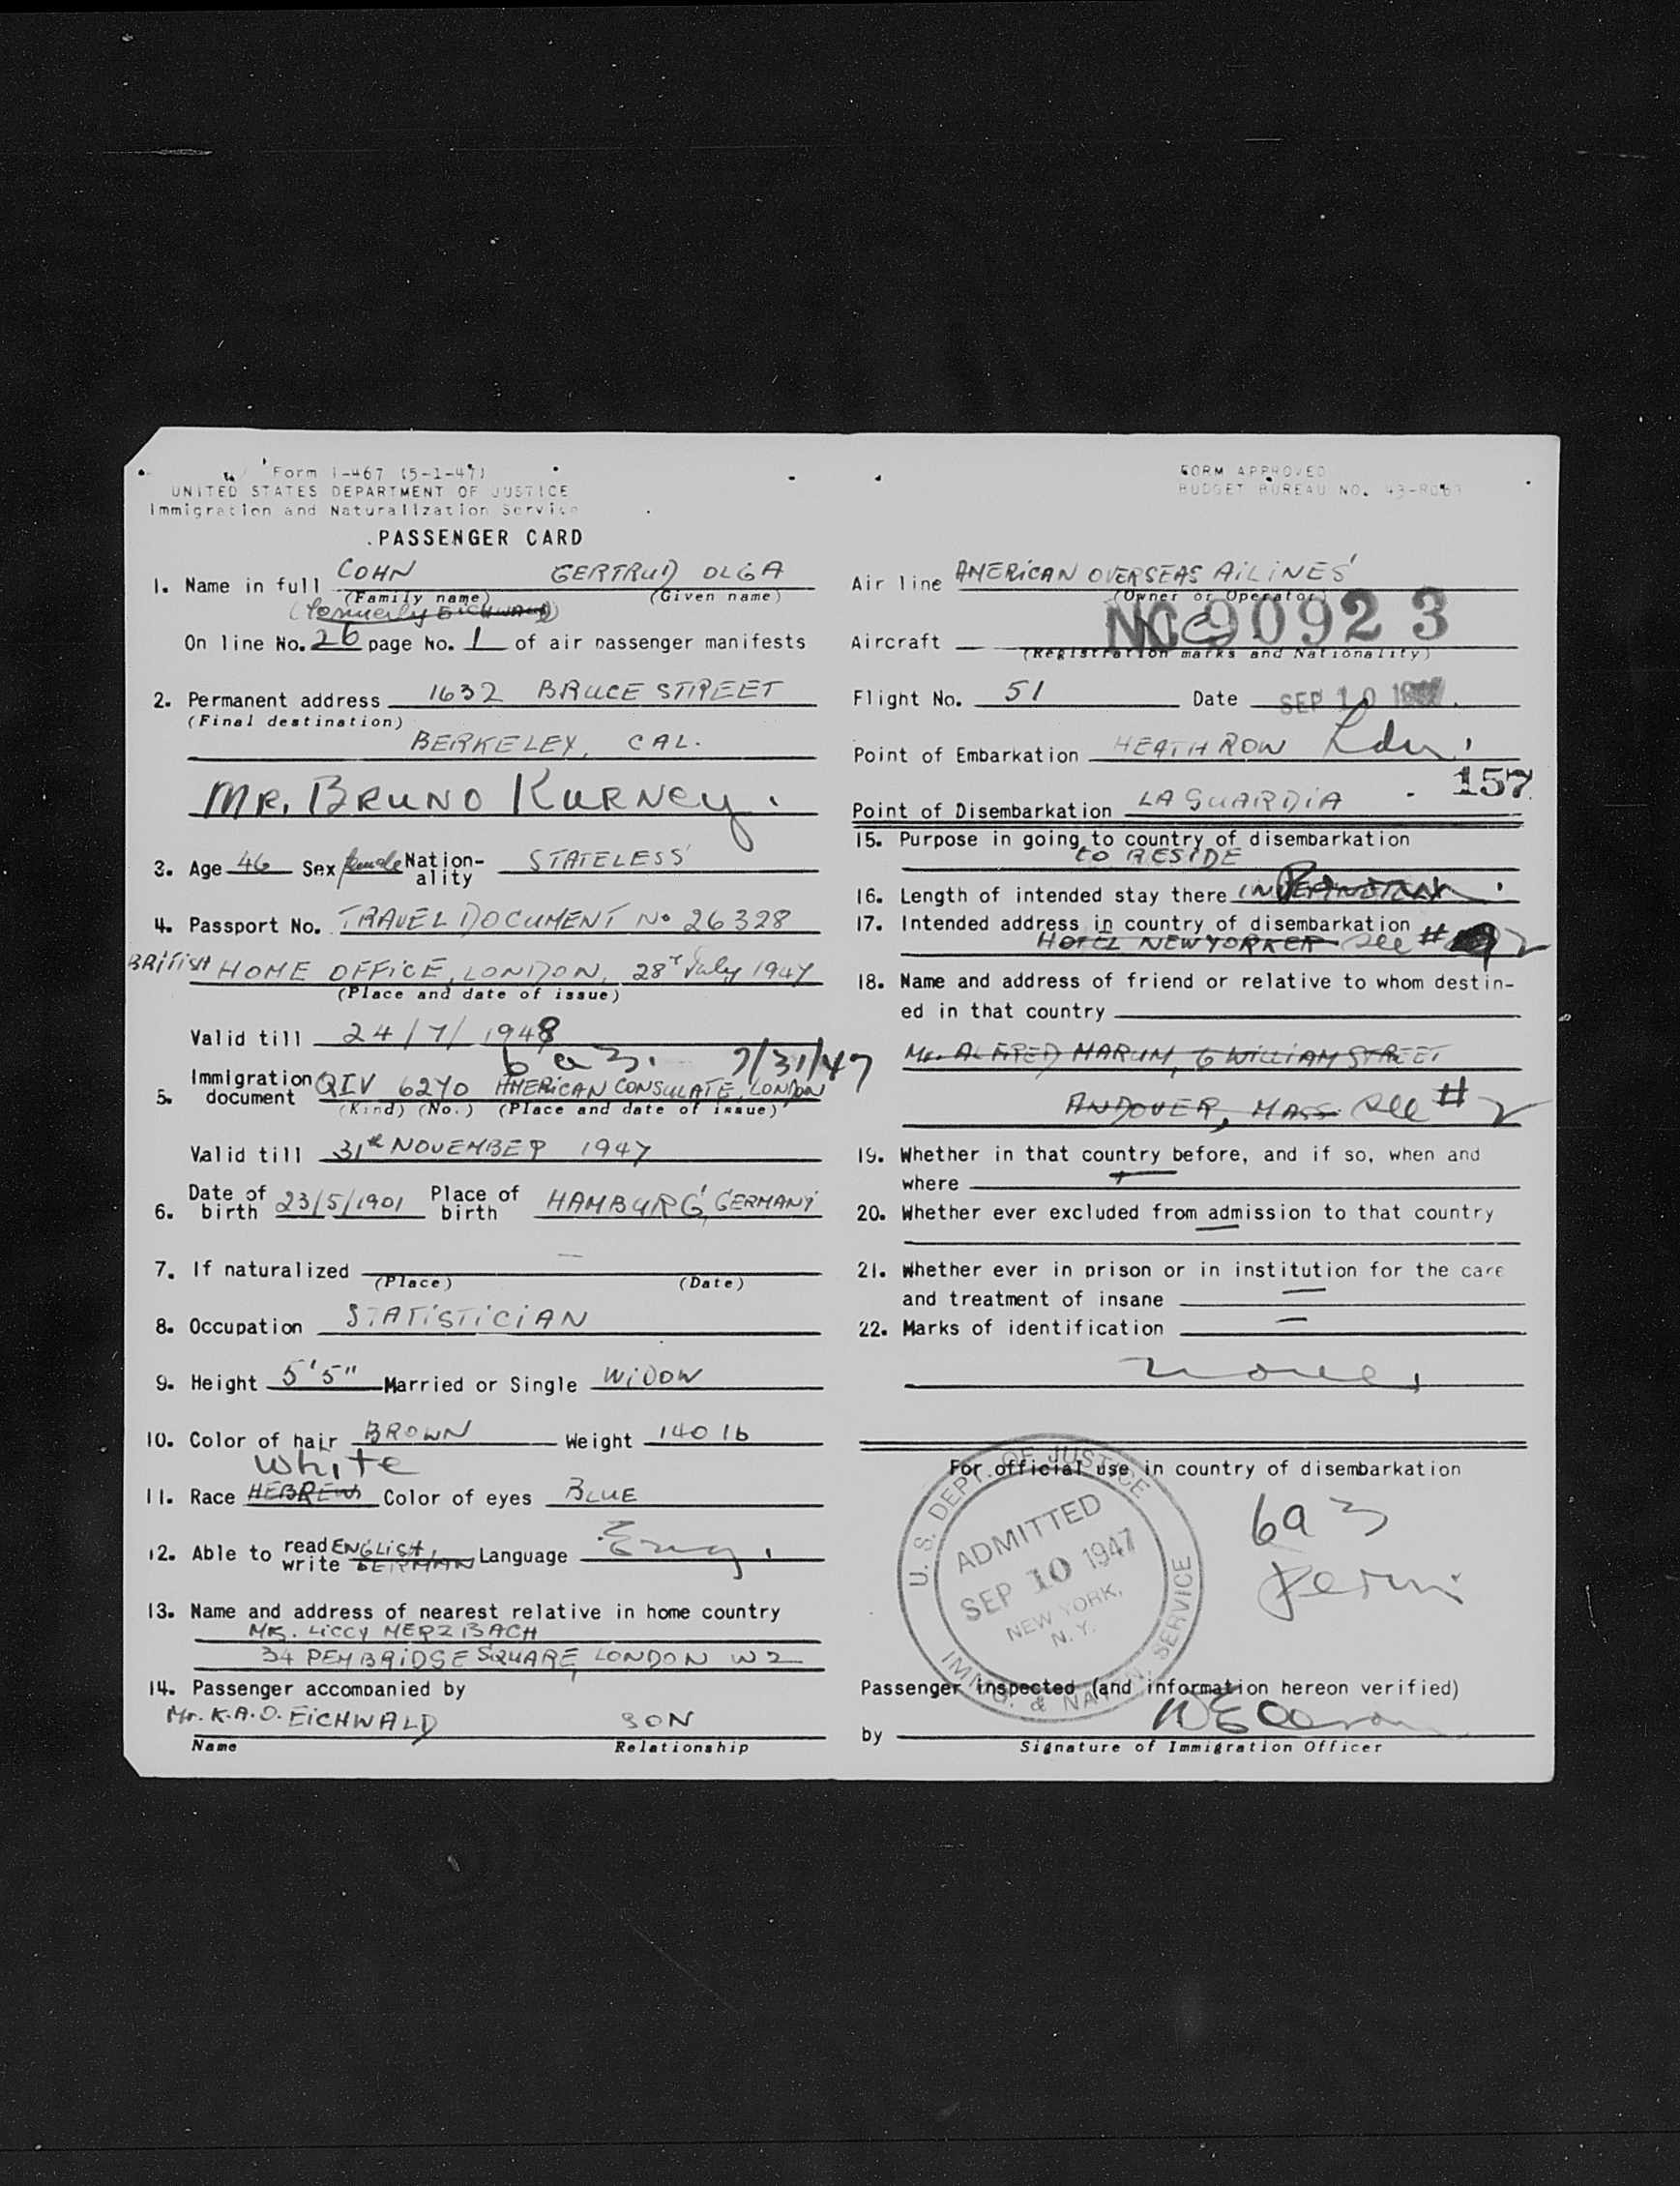 Form I-467 (5-1-47)
UNITED STATES DEPARTMENT OF JUSTICE
Immigration and Naturalization Service
PASSENGER CARD
1. Name in full COHN GERTRUD OLGA
(Family name) (Given name)
(formerly EICHWALD)
On line No. 26 page No. 1 of air passenger manifests
2. Permanent address 1632 BRUCE STREET
(Final destination)
BERKELEY, CAL.
MR. BRUNO KURNEY.
3. Age 46 Sex female Nation-ality STATELESS
4. Passport No. TRAVEL DOCUMENT No 26328
BRITISH HOME OFFICE, LONDON, 28th July 1947
(Place and date of issue)
Valid till 24/7/1948
6 a 3. 7/31/47
5. Immigration document QIV 6240 AMERICAN CONSULATE, LONDON
(Kind) (No.) (Place and date of issue)
Valid till 31th NOVEMBER 1947
6. Date of birth 23/5/1901 Place of birth HAMBURG, GERMANY
7. If naturalized —
(Place) (Date)
8. Occupation STATISTICIAN
9. Height 5'5" Married or Single WIDOW
10. Color of hair BROWN Weight 140 lb
White
11. Race HEBREW Color of eyes BLUE
12. Able to read write ENGLISH, GERMAN Language Eng.
13. Name and address of nearest relative in home country
MRS. LICCY MERZBACH
34 PEMBRIDGE SQUARE, LONDON W2
14. Passenger accompanied by
Mr. K.A.O. EICHWALD SON
Name Relationship
FORM APPROVED
BUDGET BUREAU NO. 43-R069
Air line AMERICAN OVERSEAS AILINES
(Owner or Operator)
Aircraft NC 90923
(Registration marks and Nationality)
Flight No. 51 Date SEP 10 1947
Point of Embarkation HEATHROW Ldn.
157
Point of Disembarkation LA GUARDIA
15. Purpose in going to country of disembarkation
TO RESIDE
16. Length of intended stay there
17. Intended address in country of disembarkation
HOTEL NEWYORKER see # 2
18. Name and address of friend or relative to whom destin-
ed in that country
Mr. ALFRED MARUM, 6 WILLIAM STREET
ANDOVER, MASS. see # 2
19. Whether in that country before, and if so, when and
where
20. Whether ever excluded from admission to that country
—
21. Whether ever in prison or in institution for the care
and treatment of insane —
22. Marks of identification —
none.
For official use in country of disembarkation
U. S. DEPT. OF JUSTICE
ADMITTED
SEP 10 1947
NEW YORK,
N. Y.
IMMIG. & NATZN. SERVICE
6a3
Perm
Passenger inspected (and information hereon verified)
by
Signature of Immigration Officer